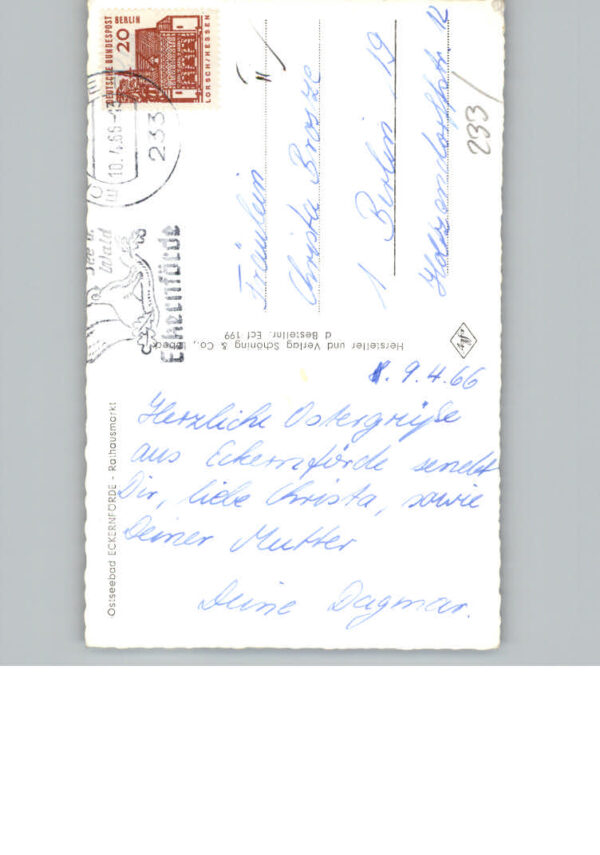 DEUTSCHE BUNDESPOST BERLIN
20
LORSCH/HESSEN
10.4.66
233
See u.
Wald
Eckernförde
Fräulein
Christa
1 Berlin 19
12
233/
Hersteller und Verlag Schöning & Co.,
d Bestellnr. Ecf 199
Agfa
Ostseebad ECKERNFÖRDE - Rathausmarkt
9.4.66
Herzliche Ostergrüße
aus Eckernförde sendet
Dir, liebe Christa, sowie
Deiner Mutter
Deine Dagmar.